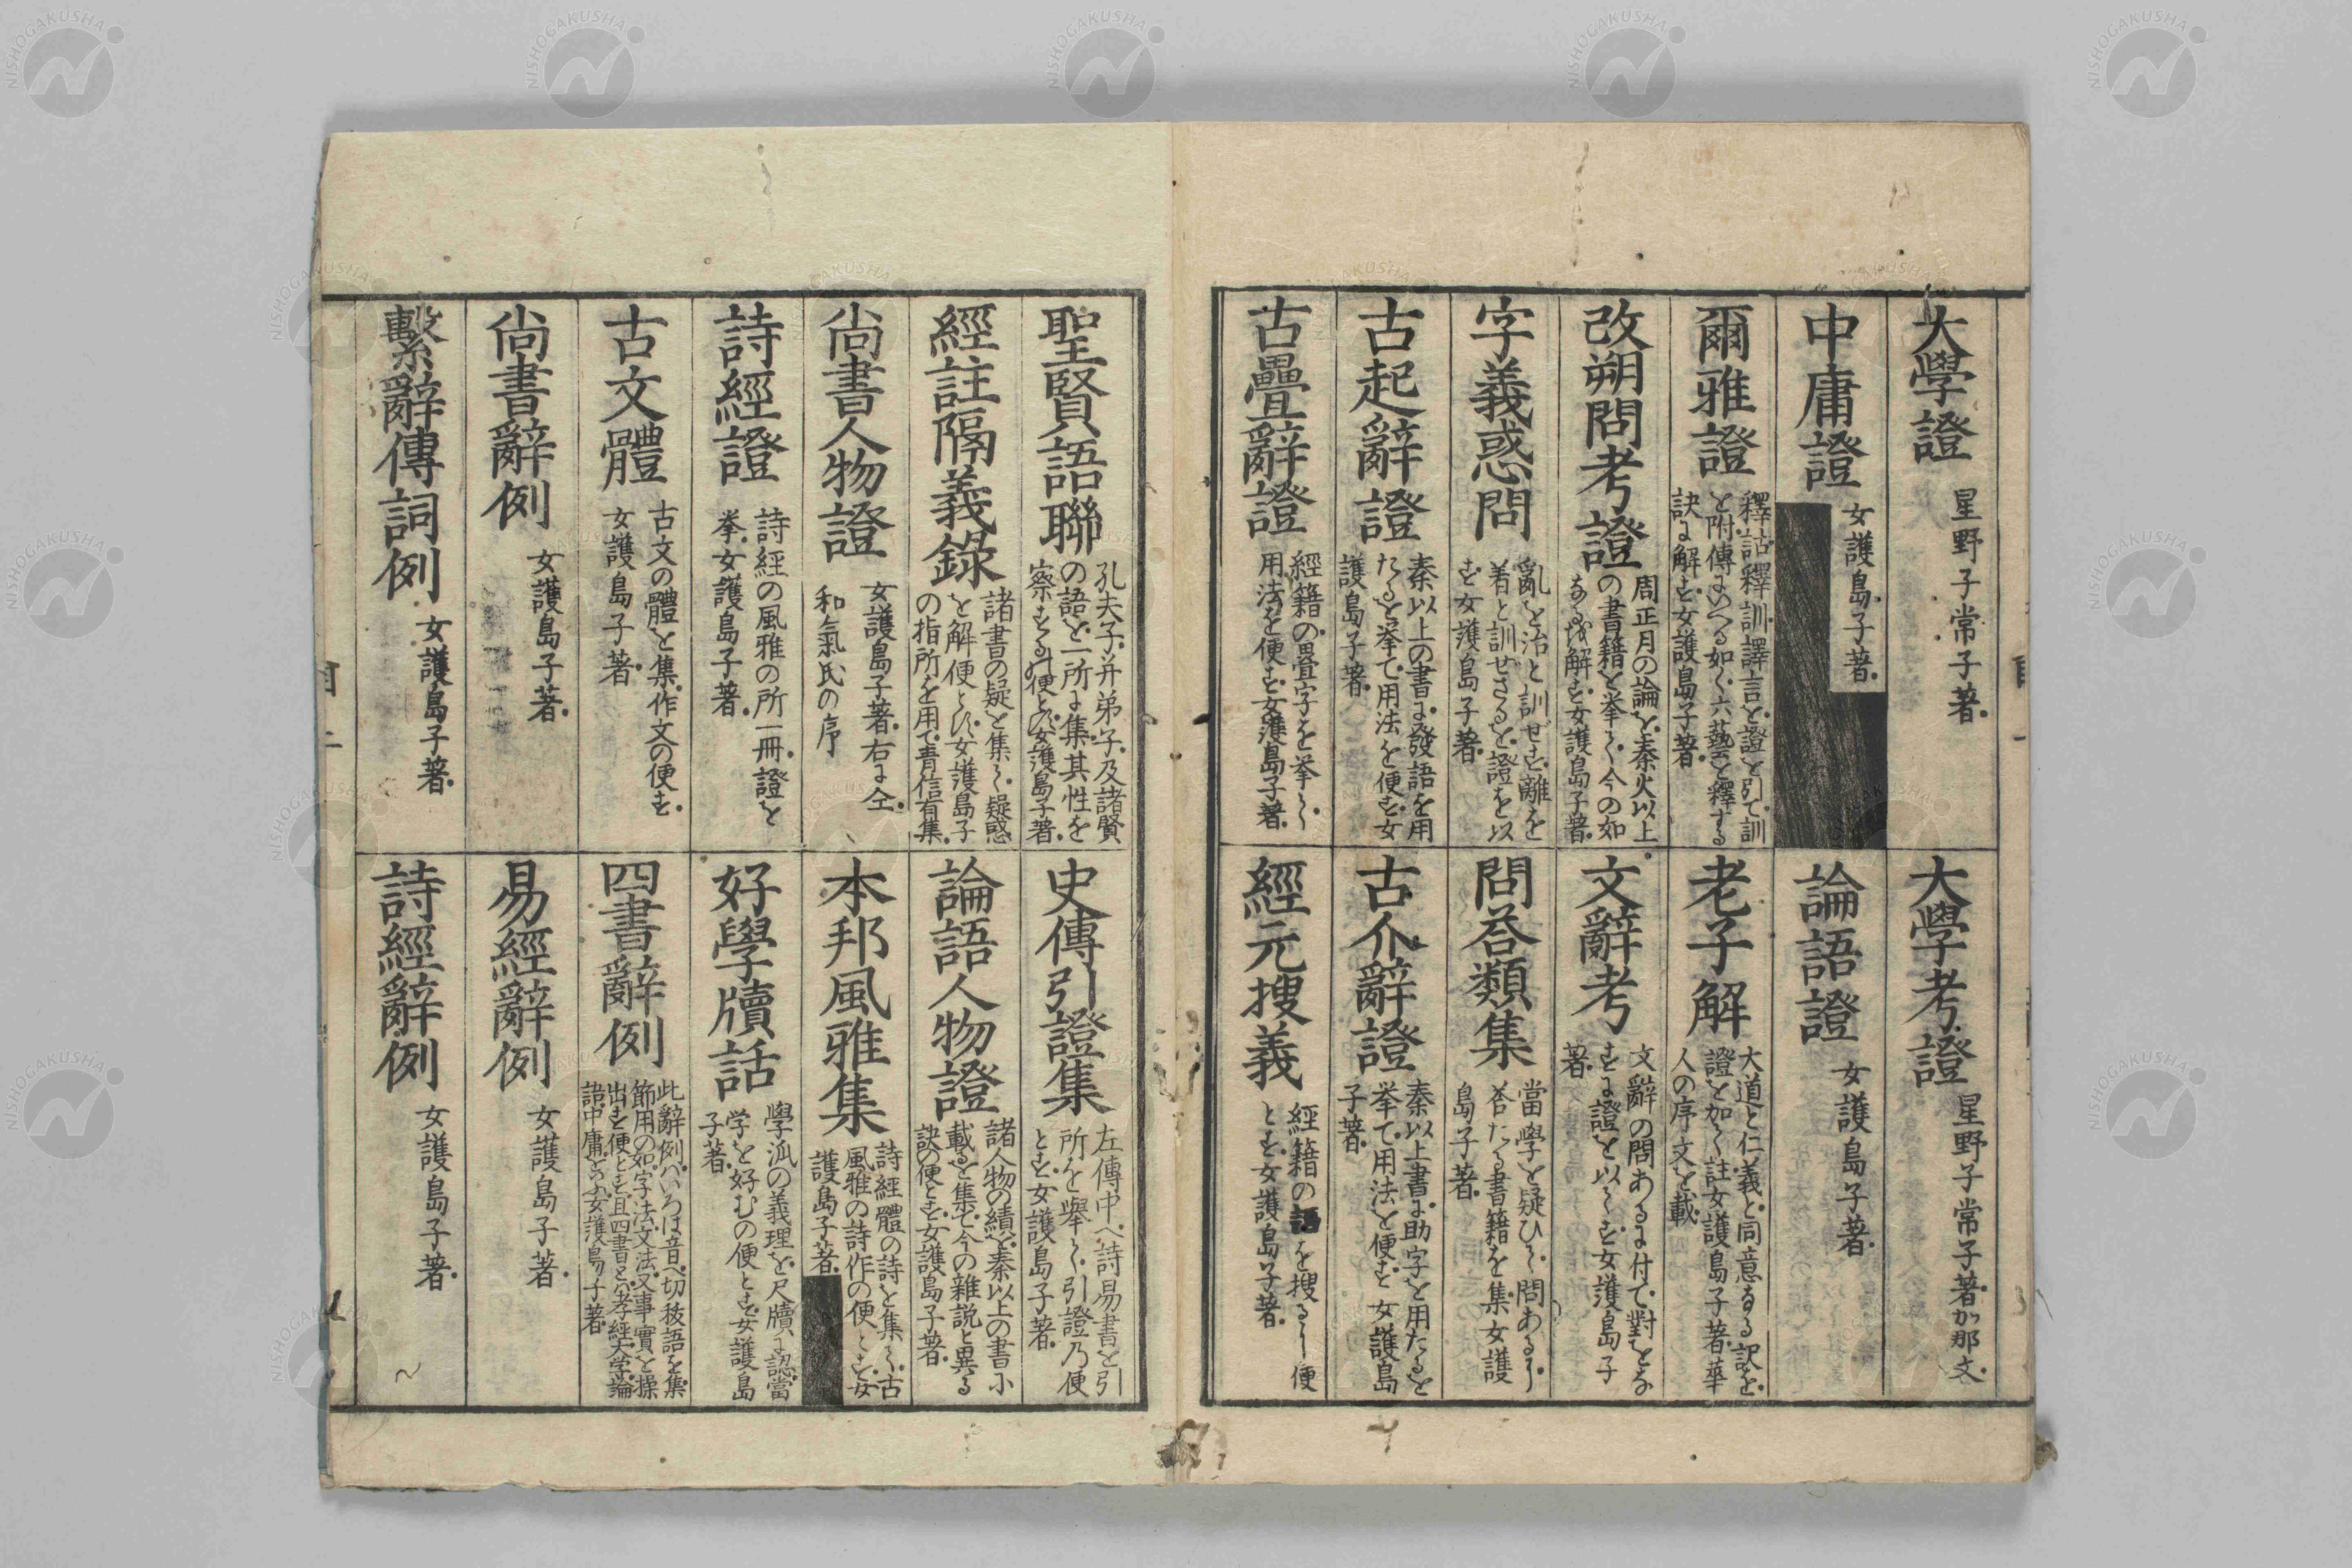 大學證
星野子常子著
中庸證
女護島子著
爾雅證
釋詁釋訓譯言を證を引て訓
を附傳まつへる如く六藝を釋する
訣ま解を女護島子著
改朔問考證
周正月の論を秦火以上
の書籍を挙く今の如
なる或解を女護島子著
字義惑問
亂を治と訓せを離を
着と訓せざるを證を以
を女護島子著
古起辭證
秦以上の書ま發語を用
たるを挙て用法を便を女
護島子著
古疊辭證
經籍の畳字を挙く
用法を便を女護島子著
大學考證
星野子常子著か那文
論語證
女護島子著
老子解
大道と仁義と同意なる訳を
證を如く註女護島子著華
人の序文を載
文辭考
文辭の問あるま付て對をな
をま證を以くを女護島子
著
問荅類集
當學を疑ひく問あるり
荅たる書籍を集女護
島子著
古介辭證
秦以上書ま助字を用たるを
挙て用法を便を女護島
子著
經元搜義
經籍の語を搜るり便
とを女護島子著
聖賢語聯
孔夫子并弟子及諸賢
の語を一所ま集其性を
察をるの便とを女護島子著
經註隔義錄
諸書の疑を集く疑惑
を解便とを女護島子
の指所を用て青信有集
尚書人物證
女護島子著右ま仝
和氣氏の序
詩經證
詩経の風雅の所一冊證を
挙女護島子著
古文體
古文の體を集作文の便を
女護島子著
尚書辭例
女護島子著
繫辭傳詞例
女護島子著
史傳引證集
左傳中へ詩易書を引
所を舉く引證乃便
とを女護島子著
論語人物證
諸人物の績を秦以上の書小
載るを集て今の雜説と異る
訣の便とを女護島子著
本邦風雅集
詩経體の詩を集く古
風雅の詩作の便とを女
護島子著
好學牘話
學派の義理を尺牘ま認當
学を好むの便とを女護島
子著
四書辭例
此辭例ハいろは音へ切熟語を集
節用の如字法文法又事實を操
出を便とを且四書と八孝經大学論
語中庸をいふ女護島子著
易經辭例
女護島子著
詩經辭例
女護島子著